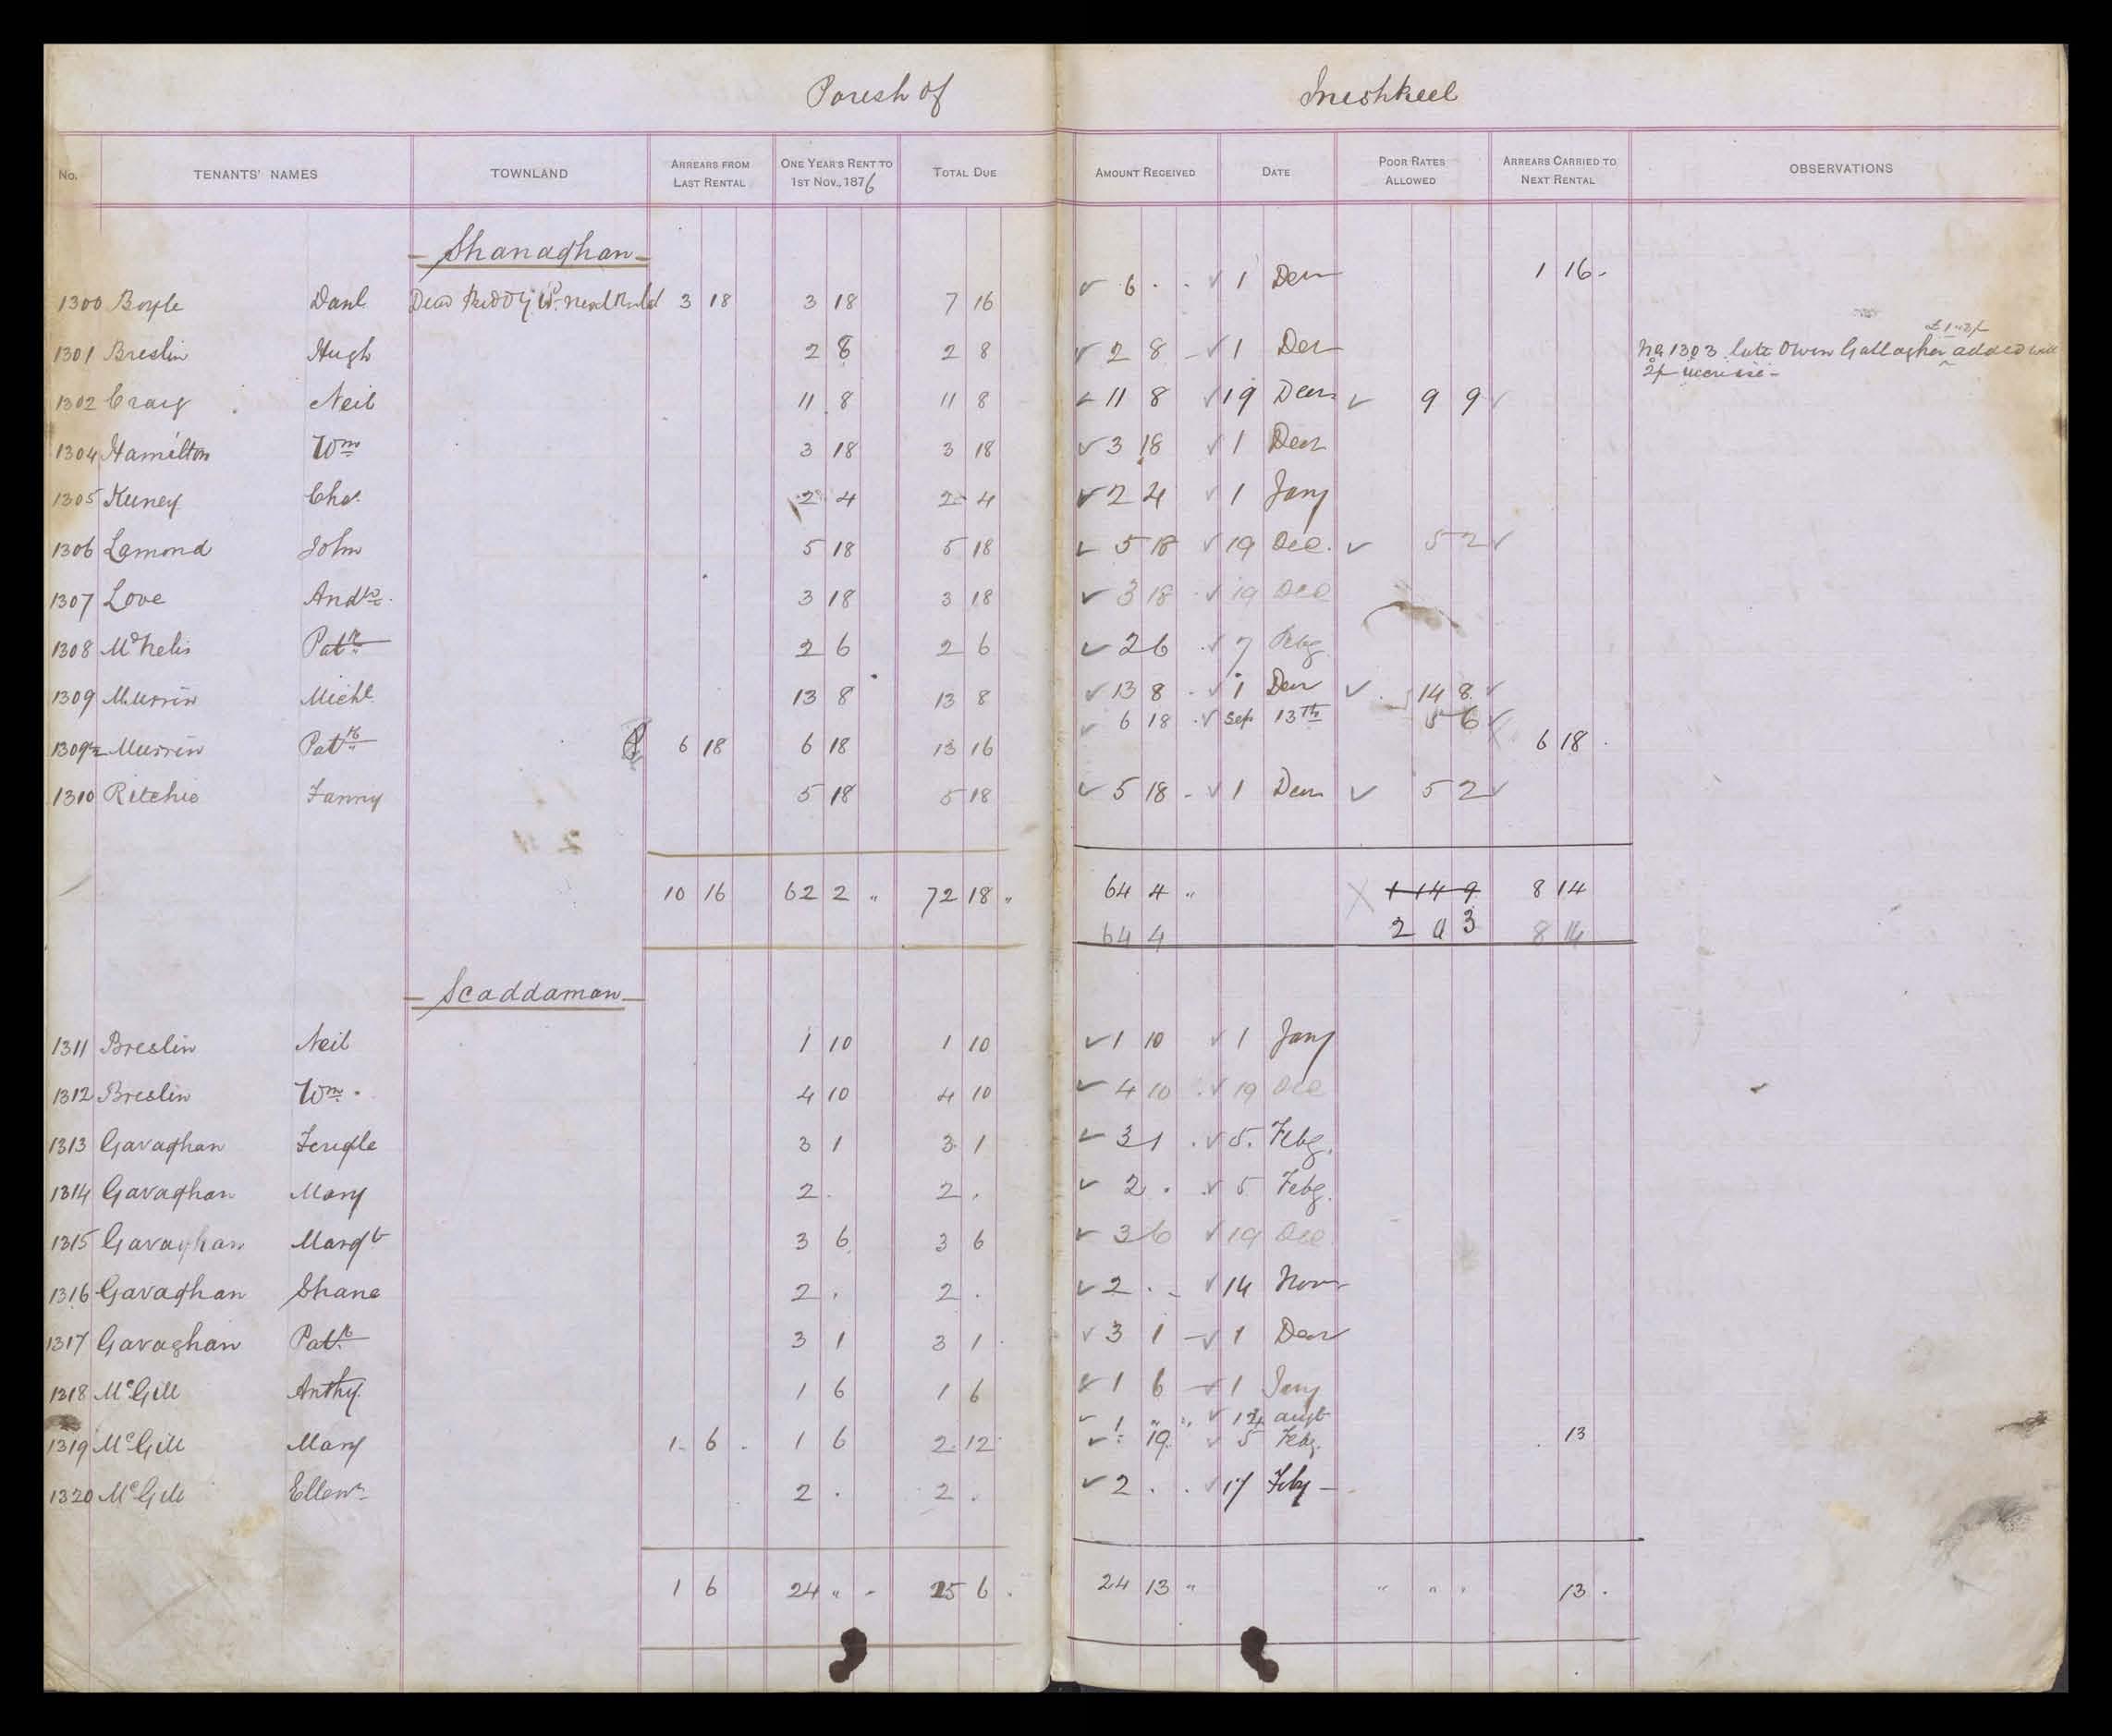 Parish of Inishkeel
No. TENANTS' NAMES TOWNLAND ARREARS FROM LAST RENTAL ONE YEAR'S RENT TO 1ST NOV., 1876 TOTAL DUE AMOUNT RECEIVED DATE POOR RATES ALLOWED ARREARS CARRIED TO NEXT RENTAL OBSERVATIONS
Shanaghan
1300 Boyle Danl Dead 3 18 3 18 7 16 ✓ 6 . . ✓ 1 Decr 1 16 -
1301 Breslin Hugh 2 8 2 8 ✓ 2 8 - ✓ 1 Decr No. 1303 late Owen Gallagher added with
£1"3/-
2/- increase -
1302 Craig Neil 11 8 11 8 ✓ 11 8 ✓ 19 Decr ✓ 9 9 ✓
1304 Hamilton Wm 3 18 3 18 ✓ 3 18 ✓ 1 Decr
1305 Keeney Chs. 2 4 2 4 ✓ 2 4 ✓ 1 Jany
1306 Lamond John 5 18 5 18 ✓ 5 18 ✓ 19 Dec. ✓ 5 2 ✓
1307 Love Andw. 3 18 3 18 ✓ 3 18 ✓ 19 Dec
1308 McNelis Patk 2 6 2 6 ✓ 2 6 ✓ 7 Feby
1309 Murrin Michl 13 8 13 8 ✓ 13 8 - ✓ 1 Decr ✓ 14 8 ✓
✓ 6 18 ✓ Sep 13th 5 6 ✓
1309½ Murrin Patk 6 18 6 18 13 16 6 18 .
1310 Ritchie Fanny 5 18 5 18 ✓ 5 18 - ✓ 1 Decr ✓ 5 2 ✓
10 16 62 2 " 72 18 " 64 4 " 1 14 9 8 14
64 4 2 0 3 8 14
Scaddaman
1311 Breslin Neil 1 10 1 10 ✓ 1 10 ✓ 1 Jany
1312 Breslin Wm. 4 10 4 10 ✓ 4 10 ✓ 19 Dec
1313 Gavaghan Feugle 3 1 3 1 ✓ 3 1 . ✓ 5. Feby.
1314 Gavaghan Mary 2 . 2 . ✓ 2 . ✓ 5 Feby.
1315 Gavaghan Margt 3 6 3 6 ✓ 3 6 ✓ 19 Dec
1316 Gavaghan Shane 2 . 2 . ✓ 2 . - ✓ 14 Novr
1317 Gavaghan Patk 3 1 3 1 ✓ 3 1 - ✓ 1 Decr
1318 McGill Anthy. 1 6 1 6 ✓ 1 6 - ✓ 1 Jany
✓ 1 " " ✓ 14 augt
1319 McGill Mary 1 6 . 1 6 2 12 ✓ : 19 ✓ 5 Feby. 13
1320 McGill Ellenr 2 . 2 . ✓ 2 . . ✓ 17 Feby -
1 6 24 " - 25 6 . 24 13 " " " " 13 .